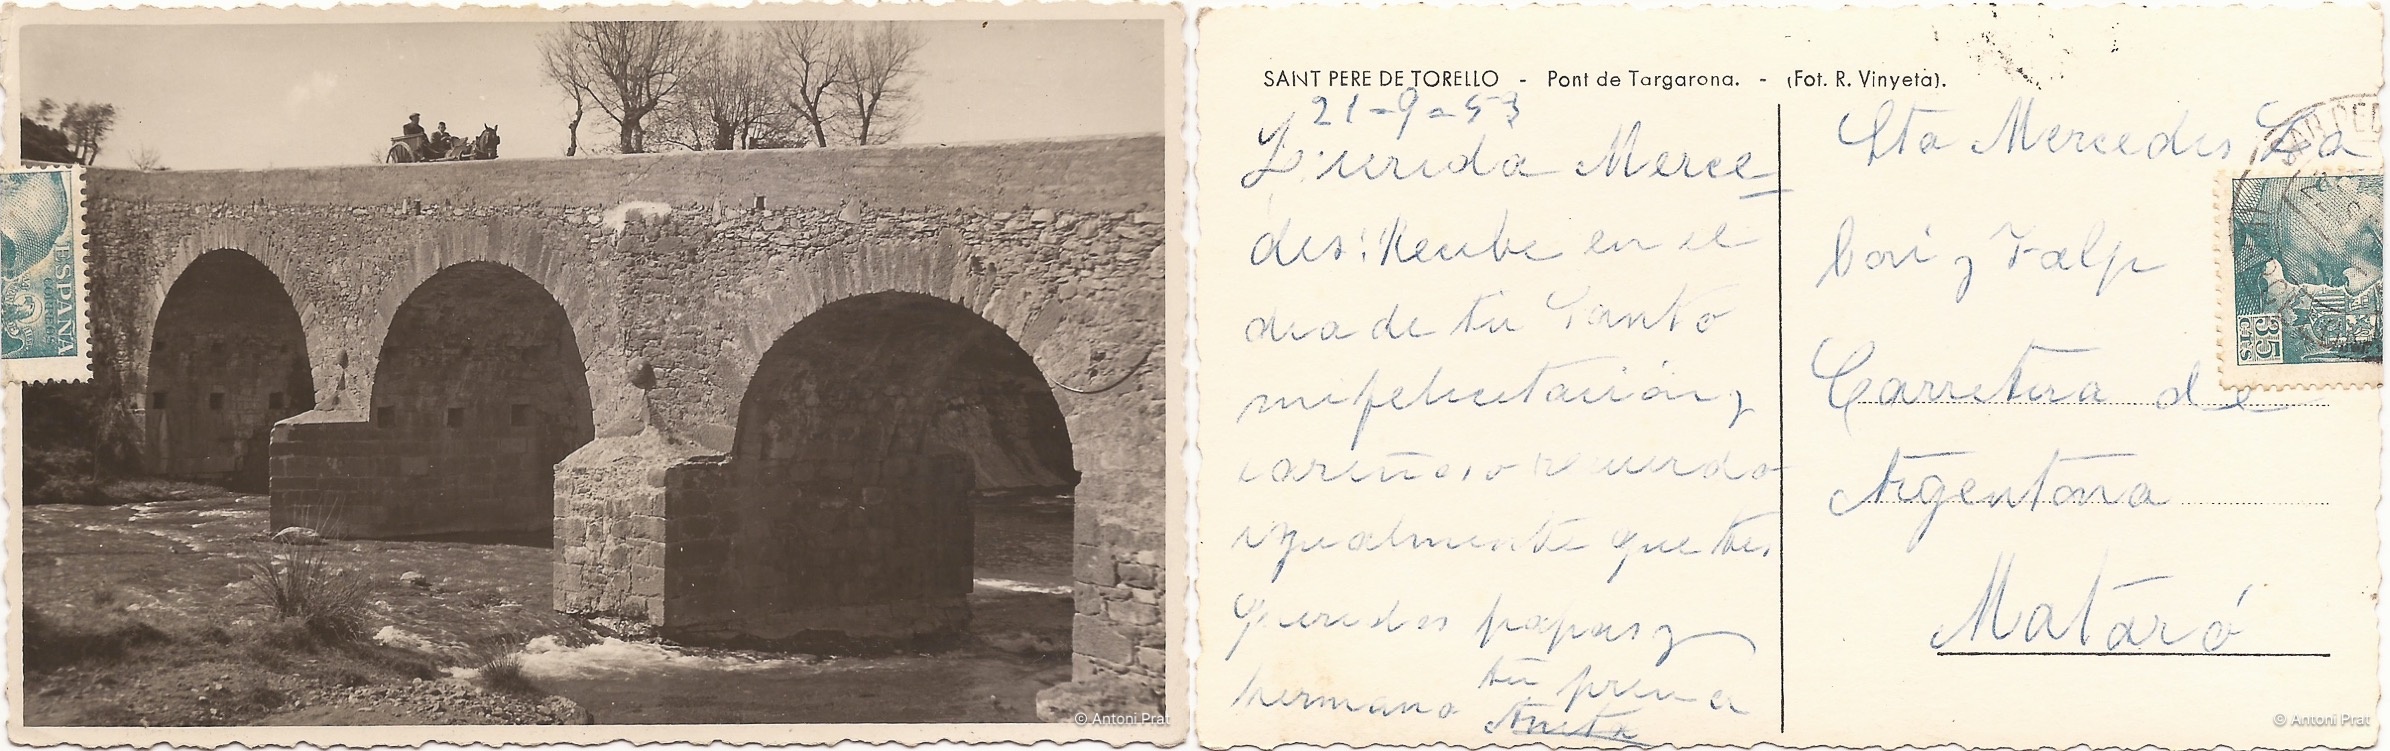 ESPAÑA
CORREOS
© Antoni Prat
SANT PERE DE TORELLO - Pont de Targarona. - (Fot. R. Vinyeta).
21-9-53
Querida Merce
des: Recibe en el
dia de tu Santo
mi felicitación y
cariñoso recuerdo
igualmente que tus
queridos papas y
hermano tu prima
Anita
Sta Mercedes
y
Carretera de
Argentona
Mataró
35
CTS
© Antoni Prat